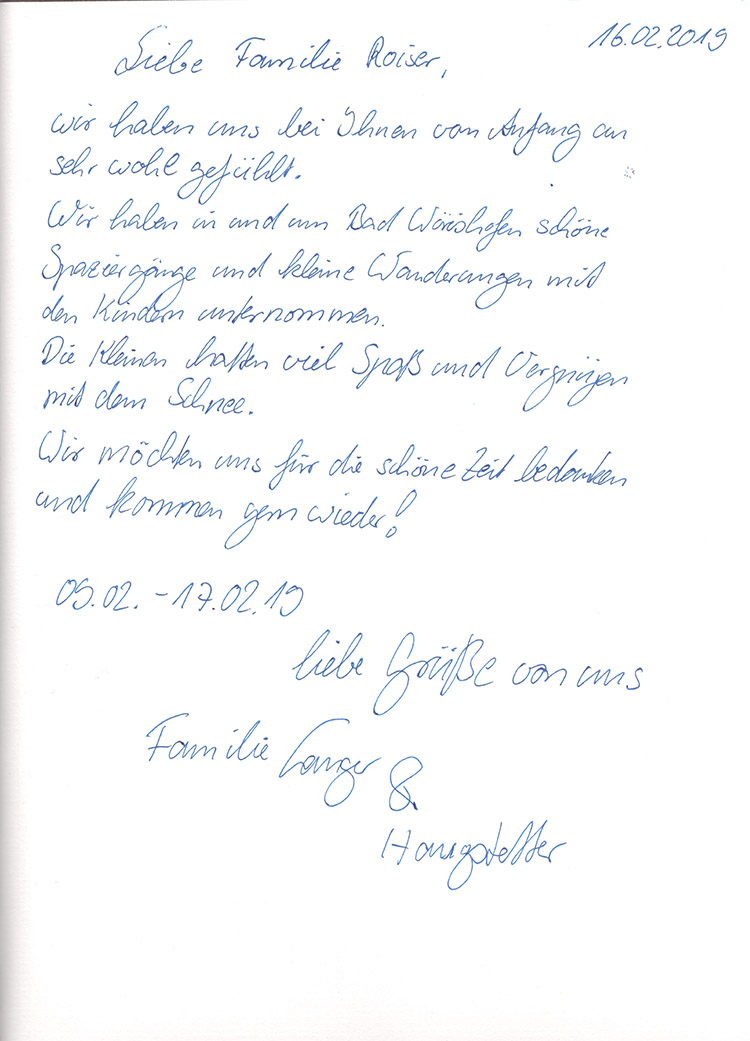 16.02.2019
Liebe Familie Roiser,
wir haben uns bei Ihnen von Anfang an
sehr wohl gefühlt.
Wir haben in und um Bad Wörishofen schöne
Spaziergänge und kleine Wanderungen mit
den Kindern unternommen.
Die Kleinen hatten viel Spaß und Vergnügen
mit dem Schnee.
Wir möchten uns für die schöne Zeit bedanken
und kommen gern wieder!
09.02. - 17.02.19
liebe Grüße von uns
Familie Langer
&